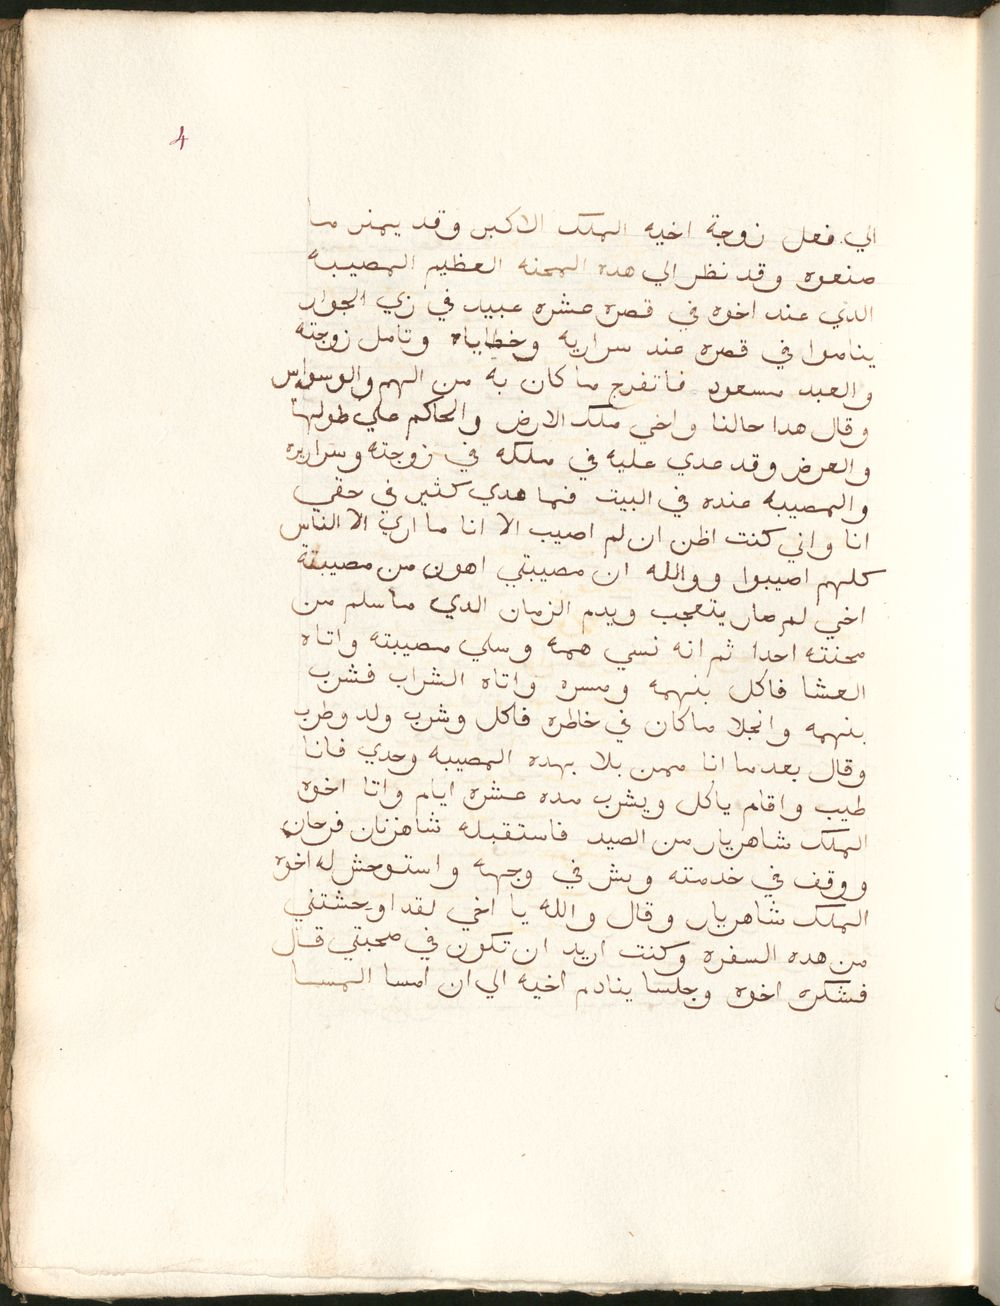 4
الي فعل زوجة اخيه الملك الاكبر وقد يمنر ما
صنعوه وقد نظر الي هده المحنه العظيم المصيبه
الدي عند اخوه في قصره عشره عبيد في زي الجوار
يناموا في قصره عند سراريه وخطاياه وتامل زوجته
والعبد مسعود فاتفرج ما كان به من الهم والوسواس
وقال هدا حالنا واخي ملك الارض والحاكم علي طولها
والعرض وقد عدي عليه في ملكه في زوجته وسراريره
والمصيبه عنده في البيت فما هدي كثير في حقي
انا واني كنت اظن ان لم اصيب الا انا ما اري الا الناس
كلهم اصيبوا ووالله ان مصيبتي اهون من مصيبة
اخي لم صار يتعجب ويدم الزمان الدي ما سلم من
محنته احدا ثم انه نسي همه وسلي مصيبته واتاه
العشا فاكل بنهمه ومسره واتاه الشراب فشرب
بنهمه وانجلا ما كان في خاطره فاكل وشرب ولد وطرب
وقال بعد ما انا ممن بلا بهده المصيبه وحدي فانا
طيب واقام ياكل ويشرب مده عشره ايام واتا اخوه
الملك شاهريار من الصيد فاستقبله شاهزنان فرحان
ووقف في خدمته وبش في وجهه واستوحش له اخوه
الملك شاهريار وقال والله يا اخي لقد اوحشتني
من هده السفره وكنت اريد ان تكون في صحبتي قال
فشكره اخوه وجلسا ينادم اخيه الي ان امسا المسا